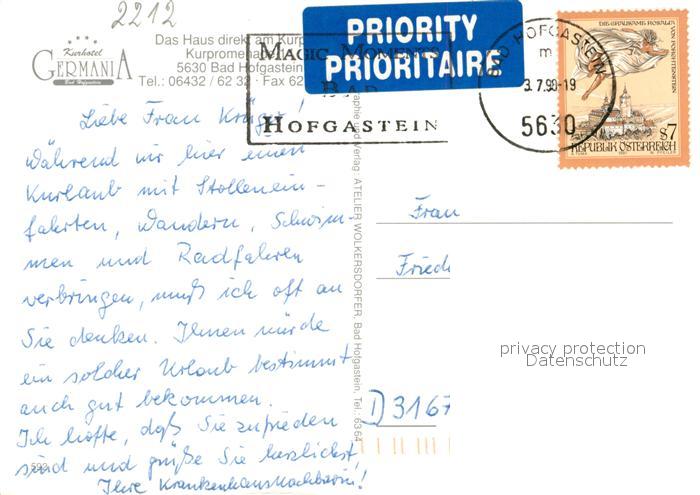 2212
Kurhotel
GERMANIA
Bad Hofgastein
Das Haus direkt am Kurp
Kurpromenade 1
5630 Bad Hofgastein
Tel.: 06432 / 62 32 · Fax 62
PRIORITY
PRIORITAIRE
MAGIC MOMENTS
BAD
HOFGASTEIN
BAD HOFGASTEIN
m
3.7.98-19
5630
DIE GRAUSAME ROSALIA
VON FORCHTENSTEIN
S7
REPUBLIK ÖSTERREICH
Liebe Frau Krüger!
Während wir hier einen
Kurlaub mit Stollenein-
fahrten, Wandern, Schwim-
men und Radfahren
verbringen, muß ich oft an
Sie denken. Ihnen würde
ein solcher Urlaub bestimmt
auch gut bekommen.
Ich hoffe, daß Sie zufrieden
sind und grüße Sie herzlichst,
Ihre Krankenhausnachbarin!
raphie und Verlag: ATELIER WOLKERSDORFER, Bad Hofgastein, Tel.: 6364
Frau
Fried
D 3167
privacy protection
Datenschutz